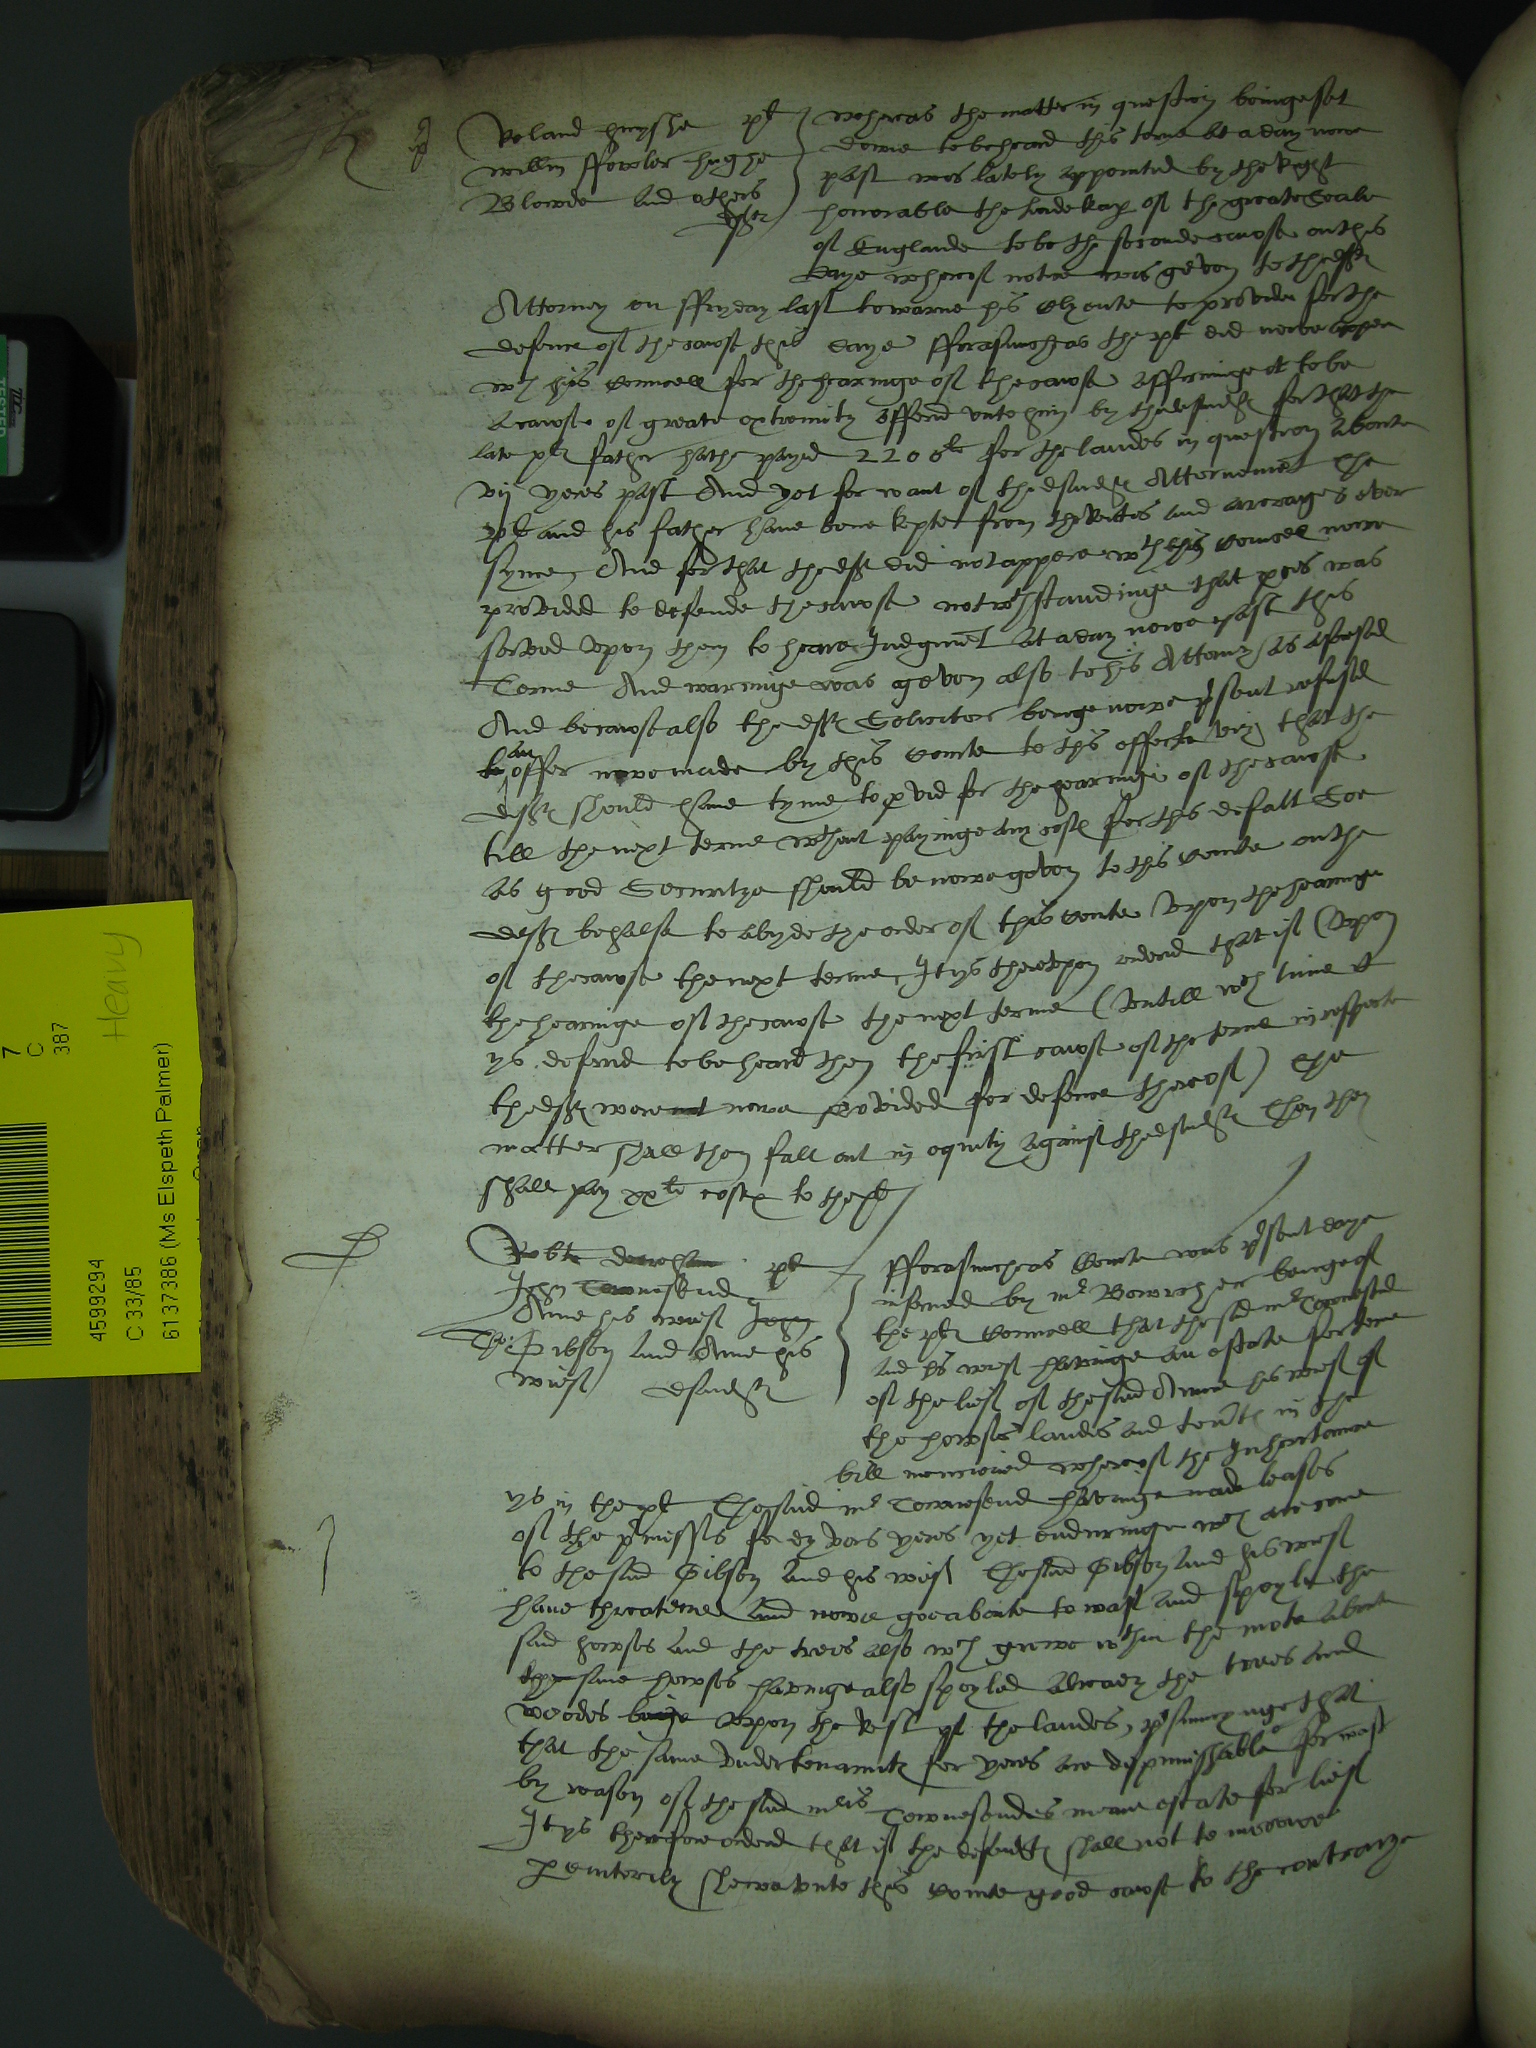 Roland Huyshe plt
Willm ffowler hughe
Blowde and others
deftes
Whereas the matter in question beinge set
downe to be heard this terme at a day nowe
past was lately appointed by the Right
honorable the lorde kep of the greate Seale
of Englande to be the seconde cause on this
daye whereof notice was geven to thedeftes
Attorney on ffryday last to warne his clyente to provide for the
defence of the cause this daye fforasmuch as the plt did nowe appere
wth his councell for the hearinge of the cause affirminge it to be
a cause of greate extremity offred unto him by the defendtes for that the
late pltes father hathe payed 2200li for the landes in question aboute
vij yeres past And yet for want of the defendtes Attornement the
plt and his father have bene kepte from the Rentes and arerages ever
synce, And for that the deft did not appere wth his councell nowe
provided to defende the cause notwthstandinge that proces was
served upon them to heare Judgmt at a day nowe past this
Terme And warninge was geven also to his Attorny as aforesd
And because also the deftes Soliciter beinge nowe psent refused
to an offer nowe made by this courte to this effecte viz that the
deftes should have tyme to pvid for the hearinge of the cause
till the next terme wthout payinge any costes for this defalt Soe
as good Securitye should be nowe geven to this courte on the
deftes behalfe to abyde the order of this courte upon the hearinge
of the cause the next terme, It ys thereupon ordered that if (upon
the hearinge of the cause the next terme (untill wch time it
ys deferred to be heard then the first cause of the terme in respecte
the deftes were not nowe provided for defence thereof) the
matter shall then fall out in equity against the defendtes Then they
shall pay xxli costes to the plt
Robte plt
John Townesend
Anne his wief John
Tho: Gibson and Anne his
wief defendtes
fforasmuch as this Courte was psent daye
informed by mr Bowrcher beinge of
the pltes councell that the said mr Townesend
and his wief havinge an estate for terme
of the lief of the said Anne his wief of
the howses landes and temtes in the
bill mencioned whereof the Inheritance
ys in the plt The said mr Townesend havinge made leases
of the pmisses for dyvers yeres yet enduringe wch are come
to the said Gibson and his wief The said Gibson and his wief
have threatened and nowe goe aboute to wast and spoyle the
said howses and the trees also wch growe wthin the mote aboute
the same howses havinge also spoyled alreadye the trees and
woodes beinge upon the rest of the landes, psumeynge that
that the same undertenantes for yeres are dispunishable for wast
by reason of the said mris Townesendes meane estate for lief
It ys therefore ordered that if the defendtes shall not to morrowe
pemtorily shewe unto this courte good cause to the contrarye
4599294
C 33/85
6137386 (Ms Elspeth Palmer)
7
C
387
Heavy
TESTED